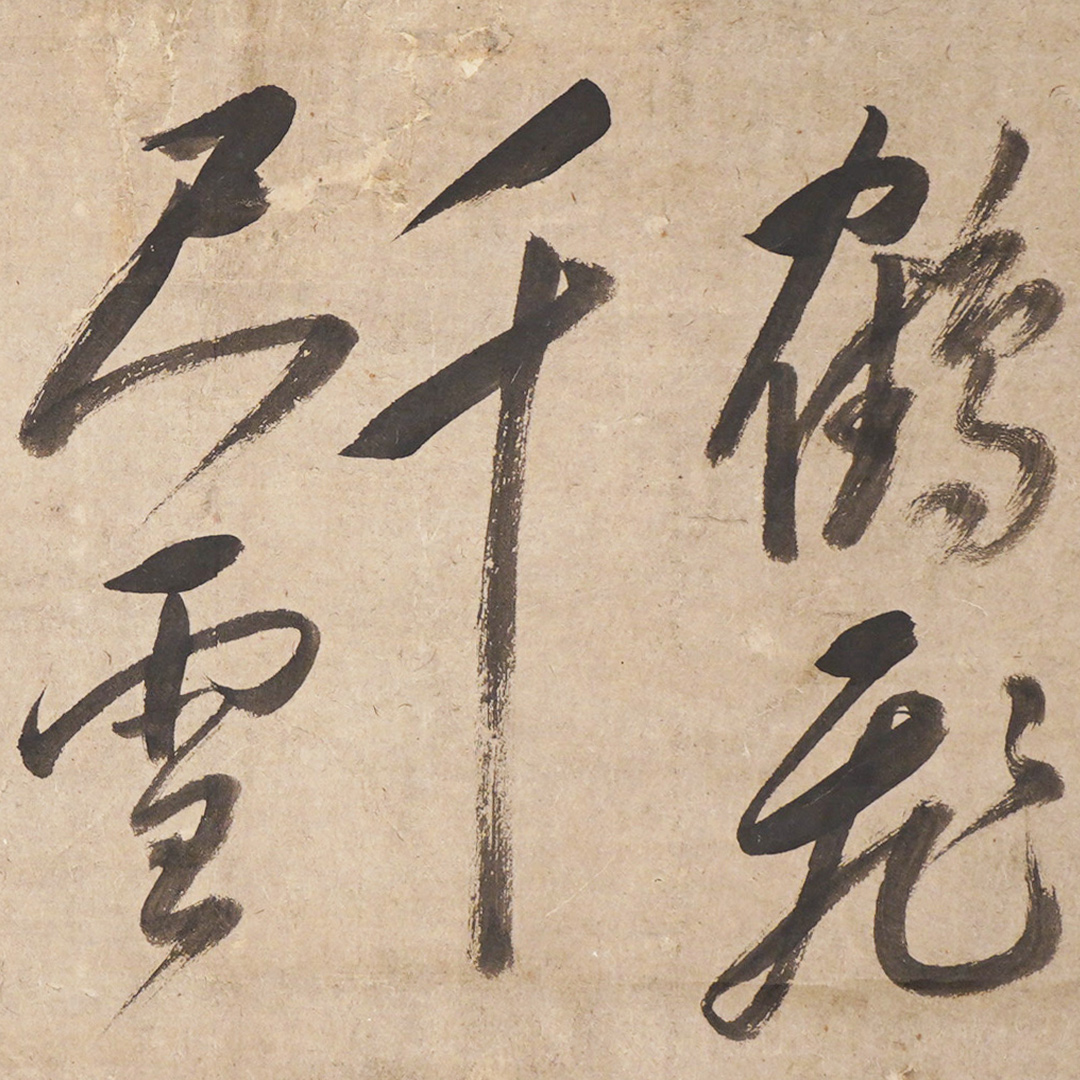 鶴飛
千
尺雪